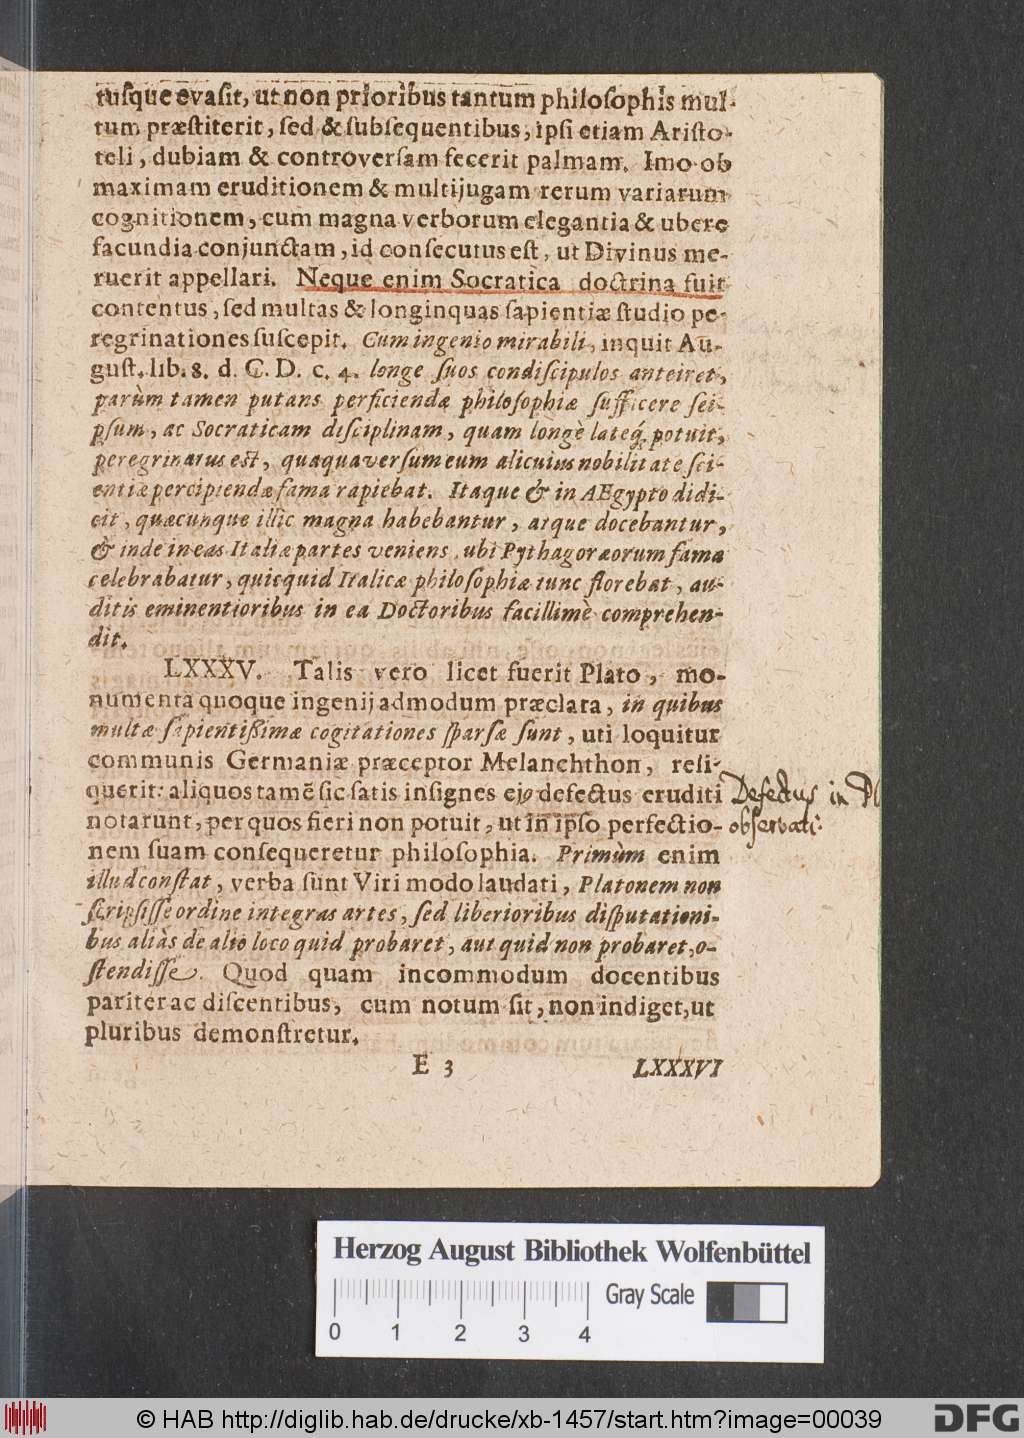 tusque evaſit, ut non prioribus tantum philoſophis mul-
tum præſtiterit, ſed & ſubſequentibus, ipſi etiam Ariſto-
teli, dubiam & controverſam fecerit palmam. Imo ob
maximam eruditionem & multijugam rerum variarum
cognitionem, cum magna verborum elegantia & ubere
facundia conjunctam, id conſecutus eſt, ut Divinus me-
ruerit appellari. Neque enim Socratica doctrina fuit
contentus, ſed multas & longinquas ſapientiæ ſtudio pe-
regrinationes ſuſcepit. Cum ingenio mirabili, inquit Au-
guſt. lib. 8. d. C. D. c. 4. longe ſuos condiſcipulos anteiret,
parùm tamen putans perficiendæ philoſophiæ ſufficere ſei-
pſum, ac Socraticam diſciplinam, quam longè lateq́; potuit,
peregrinatus eſt, quaquaverſum eum alicuius nobilitate ſci-
entiæ percipiendæ fama rapiebat. Itaque & in AEgypto didi-
cit, quæcunque illic magna habebantur, atque docebantur,
& inde in eas Italiæ partes veniens, ubi Pythagoræorum fama
celebrabatur, quicquid Italicæ philoſophiæ tunc florebat, au-
ditis eminentioribus in ea Doctoribus facillimè comprehen-
dit.
LXXXV. Talis vero licet fuerit Plato, mo-
numenta quoque ingenij admodum præclara, in quibus
multæ ſapientißimæ cogitationes ſparſæ ſunt, uti loquitur
communis Germaniæ præceptor Melanchthon, reli-
querit: aliquos tamẽ ſic ſatis inſignes ejꝰ defectus eruditi
notarunt, per quos fieri non potuit, ut in ipſo perfectio-
nem ſuam conſequeretur philoſophia. Primùm enim
illud conſtat, verba ſunt Viri modo laudati, Platonem non
ſcripſiſſe ordine integras artes, ſed liberioribus diſputationi-
bus aliàs de alio loco quid probaret, aut quid non probaret, o-
ſtendiſſe. Quod quam incommodum docentibus
pariter ac diſcentibus, cum notum ſit, non indiget, ut
pluribus demonſtretur.
E 3 LXXXVI
Defectus in Pl
observati.
Herzog August Bibliothek Wolfenbüttel
Gray Scale
0 1 2 3 4
© HAB http://diglib.hab.de/drucke/xb-1457/start.htm?image=00039
DFG